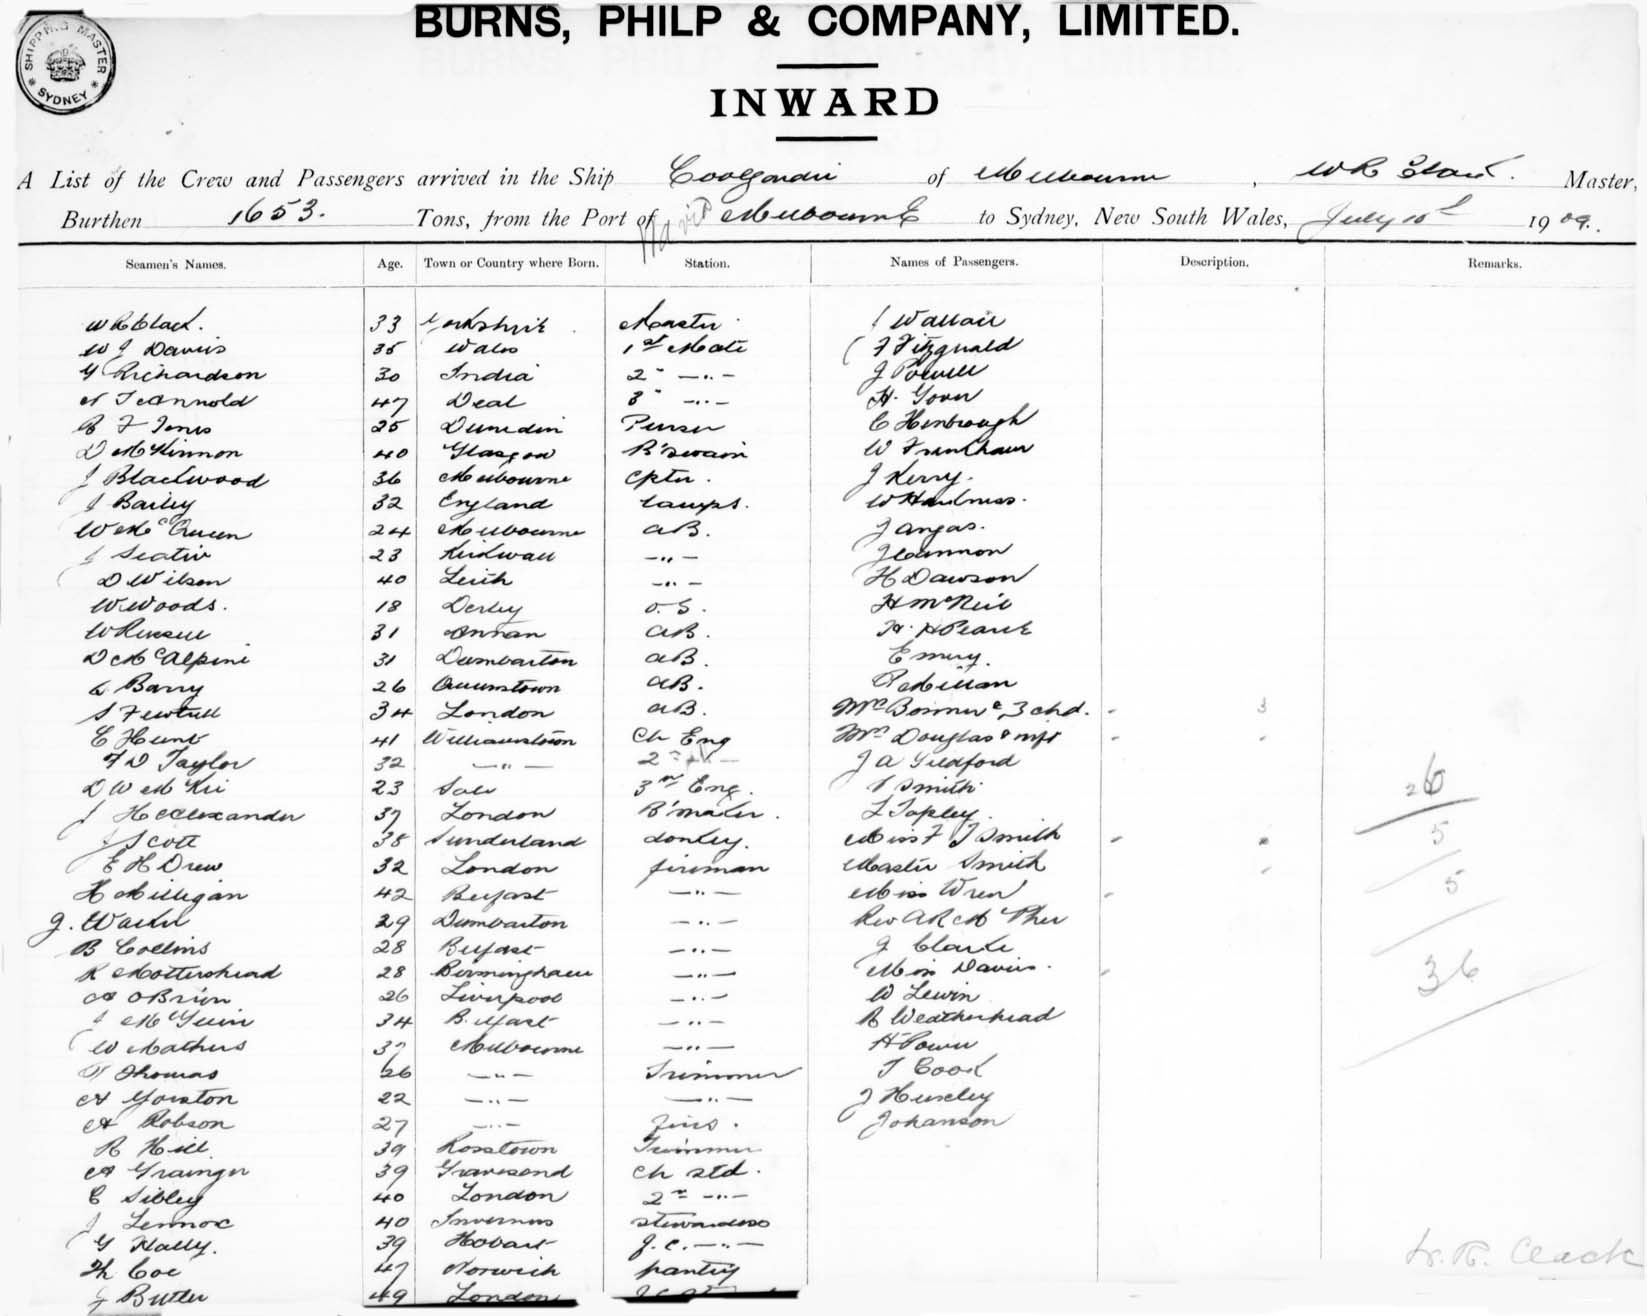 SHIPPING MASTER
SYDNEY
BURNS, PHILP & COMPANY, LIMITED.
INWARD
A List of the Crew and Passengers arrived in the Ship Coolgardie of Melbourne, W R Clack. Master,
Burthen 1653. Tons, from the Port of Melbourne to Sydney, New South Wales, July 10th 1909.
Seamen's Names. Age. Town or Country where Born. Station. Names of Passengers. Description. Remarks.
W R Clack. 33 Yorkshire Master J Wallace
W J Davies 35 Wales 1st Mate F Fitzgerald
G Richardson 30 India 2" —"— J Powell
47 Deal 3" —"— H.
R F Jones 25 Dunedin Purser C
D McKinnon 40 Glasgow B'swain W
J Blackwood 36 Melbourne Cptr. J Kerry.
J Bailey 32 England Lamps. W
W McQueen 24 Melbourne AB. J Angas.
J 23 Kirkwall —"— J Cannon
D Wilson 40 Leith —"— H Dawson
W Woods. 18 Derby O.S. H McNeil
W Russell 31 Annan AB. H. H Pearce
D McAlpine 31 Dumbarton AB. Emery.
Barry 26 Queenstown AB. R Millan
S Fewtrell 34 London AB. Mrs & 3 chd. - 3
C Hunt 41 Williamstown Ch Eng Mrs Douglas & inft - -
F D Taylor 32 —"— 2nd —"— J A Guilford
D W McKie 23 Sale 3rd Eng. Smith 26
J H Alexander 37 London B'maker. L Tapley. 5
J Scott 38 Sunderland donkey. Miss F J Smith - -
E H Drew 32 London fireman Master Smith - 5
H Milligan 42 Belfast —"— Miss Wren -
J. 29 Dumbarton —"— Rev A R McPhee
B Collins 28 Belfast —"— J Clarke
R Mottershead 28 Birmingham —"— Miss Davies. - 36
A O'Brien 26 Liverpool —"— W Lewin
J 34 Belfast —"— R Weatherhead
W Mathers 37 Melbourne —"— H Power
Thomas 26 —"— Trimmer T Cook
A Yorston 22 —"— —"— J Huxley
A Robson 27 —"— fires. Johanson
R Hill. 39 Rosstown Trimmer
A Grainger 39 Gravesend Ch Std.
C Sibley 40 London 2nd —"—
J Lennox 40 Inverness Stewardess
G Hally. 39 Hobart F.C. —"—
Coe 47 Norwich pantry W. R. Clack
J Butler 49 London